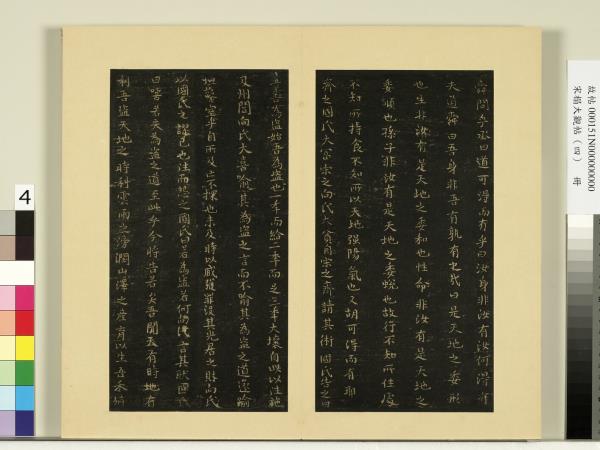 舜問乎丞曰道可得而有乎曰汝身非汝有汝何得有
夫道舜曰吾身非吾有孰有之哉曰是天地之委形
也生非汝有是天地之委和也性命非汝有是天地之
委順也孫子非汝有是天地之委蛻也故行不知所往處
不知所持食不知所以天地強陽氣也又胡可得而有耶
齊之國氏大富宋之向氏大貧自宋之齊請其術國氏告之曰
吾善為盜始吾為盜也一年而給二年而足三年大壤自此以往施
及州閭向氏大喜喻其為盜之言而不喻其為盜之道遂踰
垣鑿室手目所及亡不探也未及時以贓獲罪沒其先居之財向氏
以國氏之謬己也往而怨之國氏曰若為盜若何向氏言其狀國氏
曰嘻若失為盜之道至此乎今將告若矣吾聞天有時地有
利吾盜天地之時利雲雨之滂潤山澤之產育以生吾禾殖
故帖 000151N000000000
宋榻大觀帖（四） 冊
4